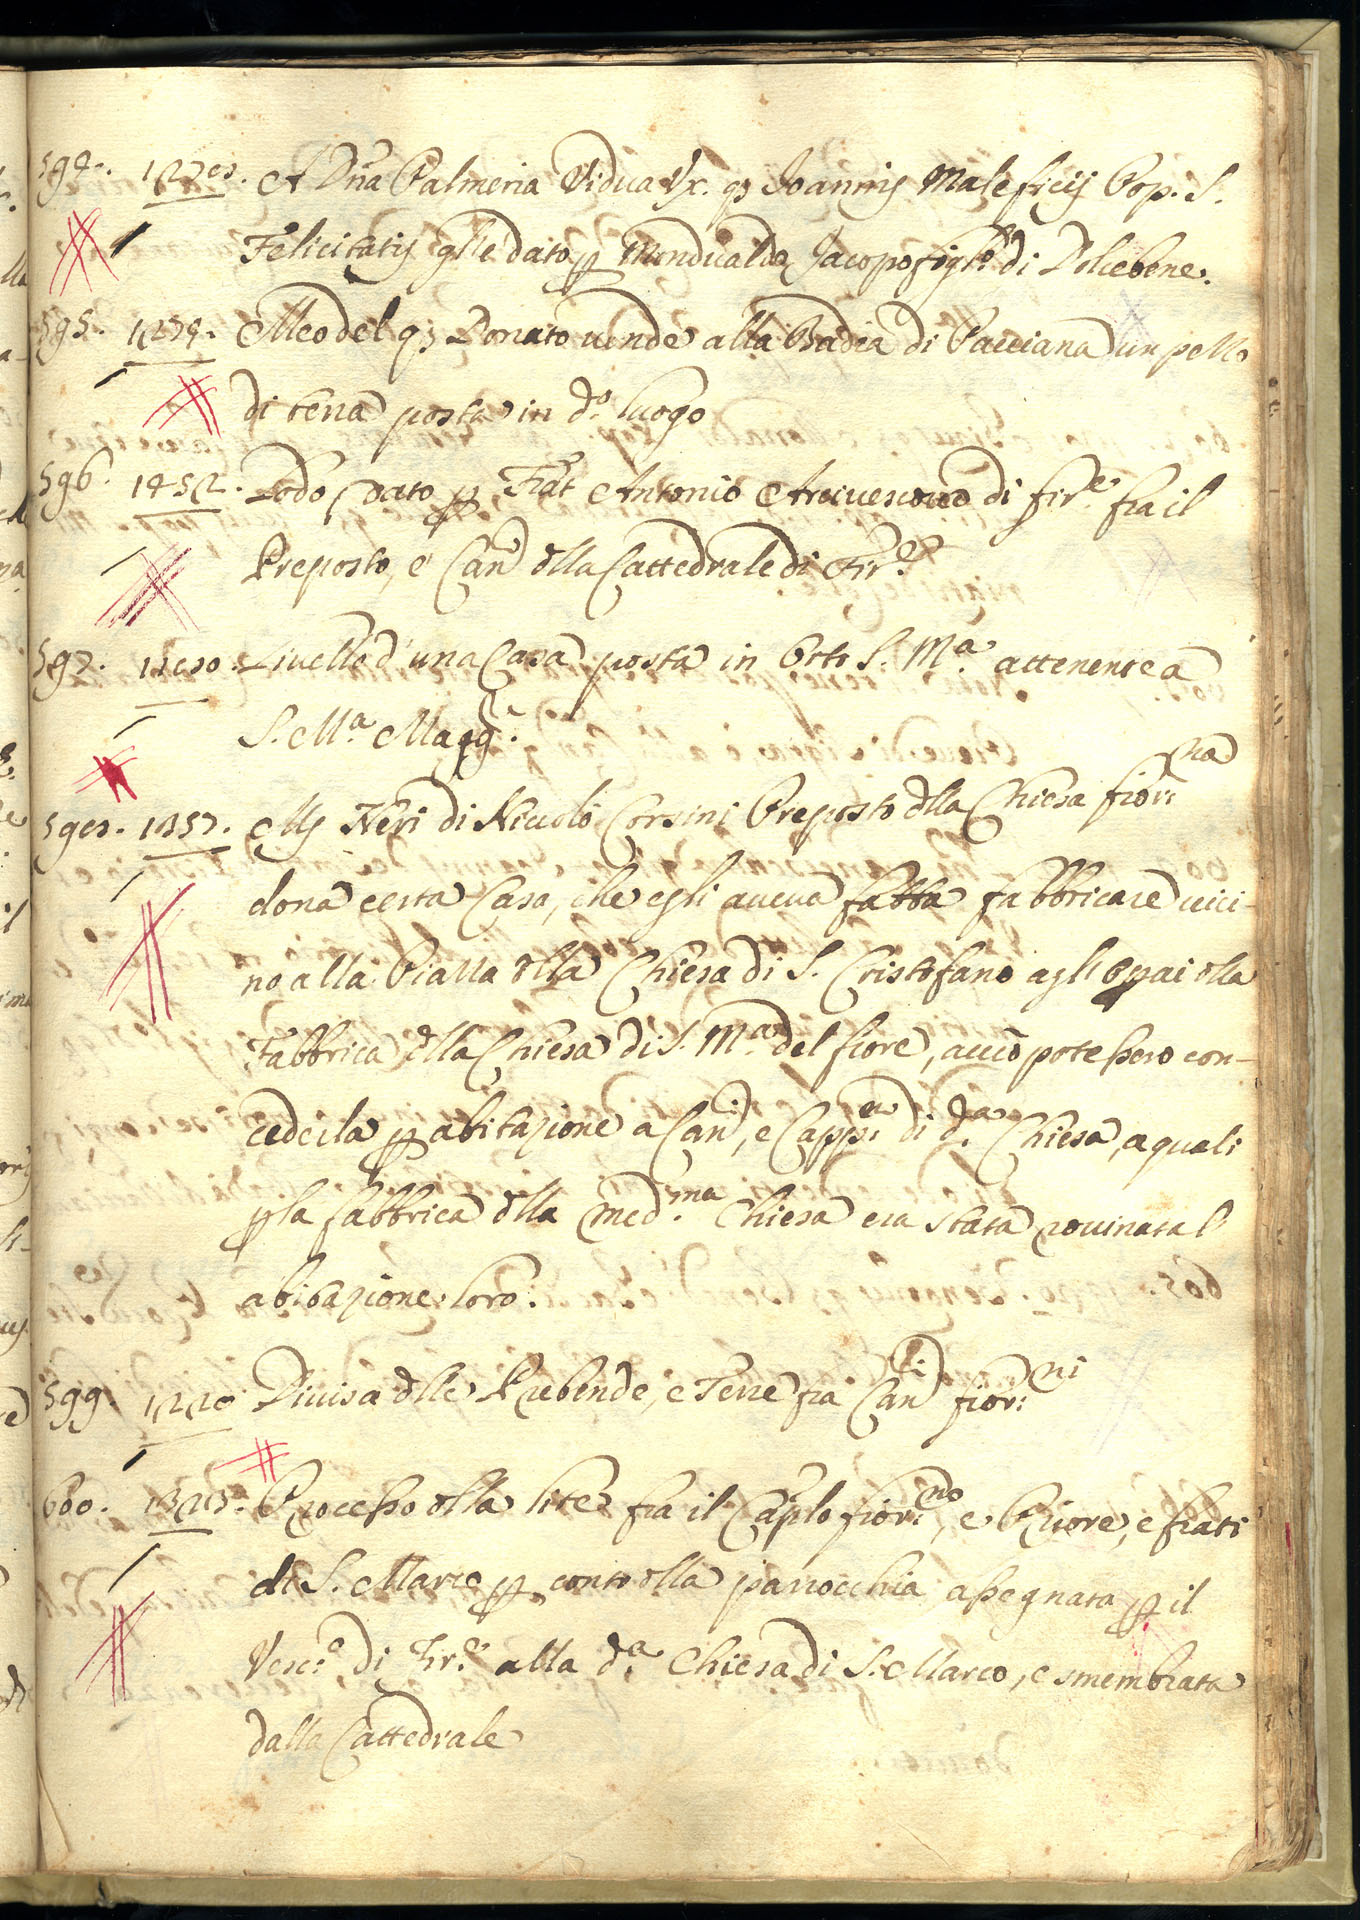 594. 1278. A Dña Palmeria Vidua Vx. q; Joannis Maleficij Pop. S.
Felicitatis gl'è dato p Mundualdo Jacopo figl.o di Dolcebene.
595. 1274. Meo del q; Donato vende alla Badia di Pacciana un pezzo
di terra posta in d.o luogo
596. 1452. Lodo dato p Frat Antonio Arcivescovo di fir.e fra il
Preposto, e Can.ci dlla Cattedrale di Fir.e
597. Livello d'una Casa posta in Orto S. M.a attenente a
S. M.a Magg.e
598. 1357. Ms Neri di Niccolò Corsini Preposto dlla Chiesa fior:na
dona certa Casa, che egli aveva fatta fabbricare vici-
no alla Piazza dlla Chiesa di S. Cristofano agli Opai dlla
Fabbrica dlla Chiesa di S. M.a del fiore, acciò potessero con-
cederla p abitazione a Can.ci, e Capp.ni di d.a Chiesa, a quali
p la fabbrica dlla med.ma Chiesa era stata rovinata l'
abitazione loro.
599. 1220. Divisa dlle Prebende, e Terre fra Can.ci fior:ni
600. Processo dlla lite fra il Cap̃lo fior:no, e Priore, e frati
di S. Marco p conto dlla parrocchia assegnata p il
Vesc.o di Fir.e alla d.a Chiesa di S. Marco, e smembrata
dalla Cattedrale